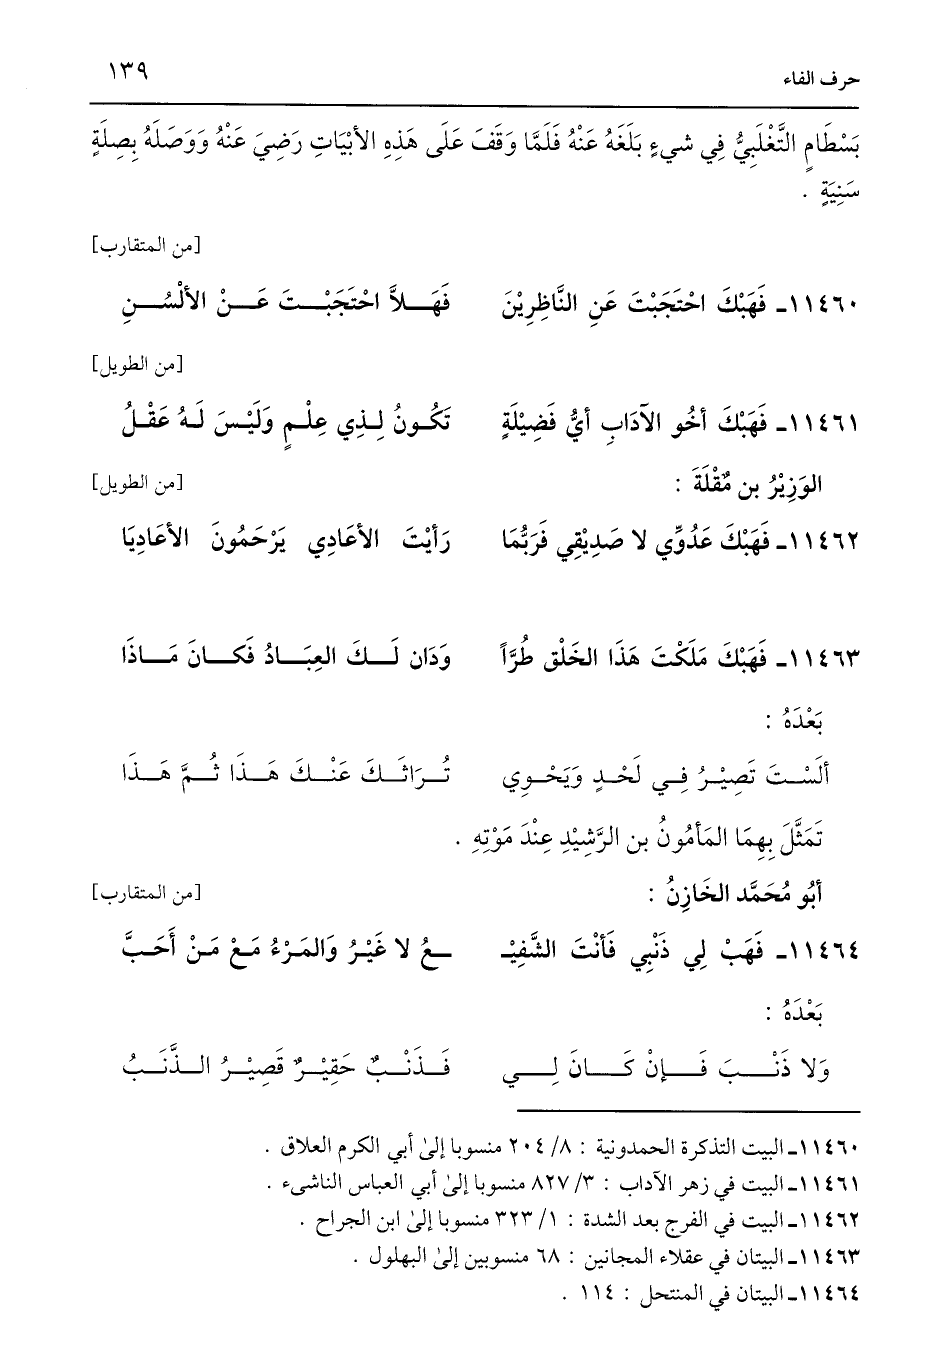 حرف الفاء ١٣٩
بَسْطَامٍ التَّغْلَبِيُّ فِي شيءٍ بَلَغَهُ عَنْهُ فَلَمَّا وَقَفَ عَلَى هَذِهِ الأبْيَاتِ رَضِيَ عَنْهُ وَوَصَلَهُ بِصِلَةٍ
سَنِيَةٍ .
[من المتقارب]
١١٤٦٠ـ فَهَبْكَ احْتَجَبْتَ عَنِ النَّاظِرِيْنَ فَهَلاَّ احْتَجَبْتَ عَنْ الألْسُنِ
[من الطويل]
١١٤٦١ـ فَهَبْكَ أخُو الآدَابِ أيُّ فَضِيْلَةٍ تَكُونُ لِذِي عِلْمٍ وَلَيْسَ لَهُ عَقْلُ
الوَزِيْرُ بن مُقْلَةَ : [من الطويل]
١١٤٦٢ـ فَهَبْكَ عَدُوِّي لا صَدِيْقِي فَرَبُّمَا رَأيْتَ الأعَادِي يَرْحَمُونَ الأعَادِيَا
١١٤٦٣ـ فَهَبْكَ مَلَكْتَ هَذَا الخَلْقِ طُرَّاً وَدَان لَكَ العِبَادُ فَكَانَ مَاذَا
بَعْدَهُ :
ألَسْتَ تَصِيْرُ فِي لَحْدٍ وَيَحْوِي تُرَاثَكَ عَنْكَ هَذَا ثُمَّ هَذَا
تَمَثَّلَ بِهِمَا المَأمُونُ بن الرَّشِيْدِ عِنْدَ مَوْتِهِ .
أبُو مُحَمَّد الخَازِنُ : [من المتقارب]
١١٤٦٤ـ فَهَبْ لِي ذَنْبِي فَأنْتَ الشَّفِيْـ ـعُ لا غَيْرُ وَالمَرْءُ مَعْ مَنْ أَحَبَّ
بَعْدَهُ :
وَلا ذَنْبَ فَإنْ كَانَ لِي فَذَنْبٌ حَقِيْرٌ قَصِيْرُ الذَّنَبُ
١١٤٦٠ـ البيت التذكرة الحمدونية : ٨/ ٢٠٤ منسوبا إلىٰ أبي الكرم العلاق .
١١٤٦١ـ البيت في زهر الآداب : ٨٢٧/٣ منسوبا إلىٰ أبي العباس الناشىء .
١١٤٦٢ـ البيت في الفرج بعد الشدة : ١/ ٣٢٣ منسوبا إلىٰ ابن الجراح .
١١٤٦٣ـ البيتان في عقلاء المجانين : ٦٨ منسوبين إلىٰ البهلول .
١١٤٦٤ـ البيتان في المنتحل : ١١٤ .